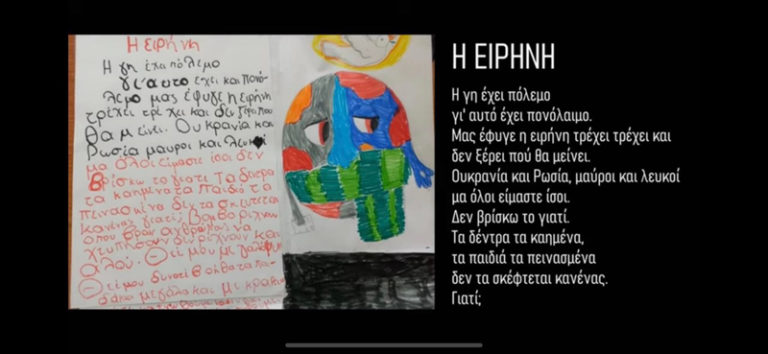 Η ειρήνη
Η γη έχει πόλεμο
γι' αυτο έχει και πονό-
λεμο μας έφυγε η ειρήνη
τρέχει τρέ χει και δεν ξέρει που
θα μείνει. Ουκρανία και
Ρωσία μαυροι και λευκοί
μα όλοι είμαστε ίσοι δεν
βρίσκω το γιατί τα δέντρα
τα καημένα τα παιδιά τα
πεινασμένα δεν τα σκέφτεται
κανένας γιατί;
χτυπήσουν δεν ρίχνουν και
αλού.
Η ΕΙΡΗΝΗ
Η γη έχει πόλεμο
γι' αυτό έχει πονόλαιμο.
Μας έφυγε η ειρήνη τρέχει τρέχει και
δεν ξέρει πού θα μείνει.
Ουκρανία και Ρωσία, μαύροι και λευκοί
μα όλοι είμαστε ίσοι.
Δεν βρίσκω το γιατί.
Τα δέντρα τα καημένα,
τα παιδιά τα πεινασμένα
δεν τα σκέφτεται κανένας.
Γιατί;